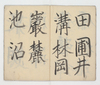 田圃井
溝林岡
巖麓
池沼